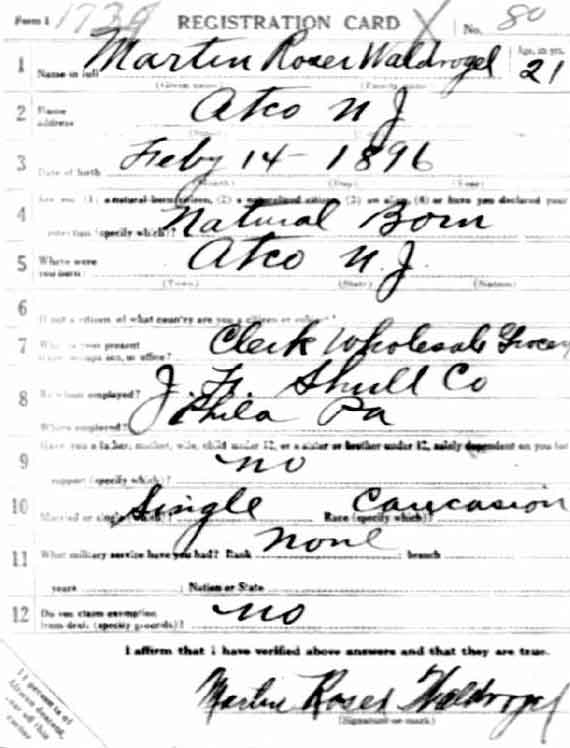 Form 1 1739 REGISTRATION CARD X No. 80
1 Name in full Martin Roser Waldvogel Age, in yrs. 21
(Given name) (Family name)
2 Home address Atco N J
3 Date of birth Feby 14 - 1896
(Month) (Day) (Year)
4 Are you (1) a natural-born citizen, (2) a naturalized citizen, (3) an alien, (4) or have you declared your
intention (specify which)? Natural Born
5 Where were you born? Atco N. J.
(Town) (State) (Nation)
6 If not a citizen, of what country are you a citizen or subject?
7 What is your present trade, occupation, or office? Clerk Wholesale Grocery
8 By whom employed? J. H. Shull Co
Where employed? Phila Pa
9 Have you a father, mother, wife, child under 12, or a sister or brother under 12, solely dependent on you for
support (specify which)? no
10 Married or single (which)? Single Race (specify which)? Caucasion
11 What military service have you had? Rank none ; branch
years ; Nation or State
12 Do you claim exemption from draft (specify grounds)? no
I affirm that I have verified above answers and that they are true.
Martin Roser Waldvogel
(Signature or mark)